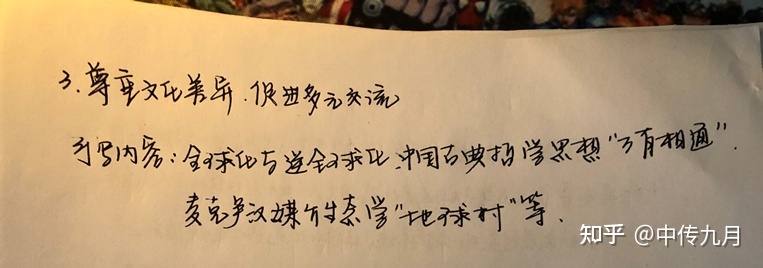 3.尊重文化差异.促进多元交流
可写内容:全球化与逆全球化.中国古典哲学思想"万有相通".
麦克卢汉媒介生态学"地球村"等.
知乎 @中传九月